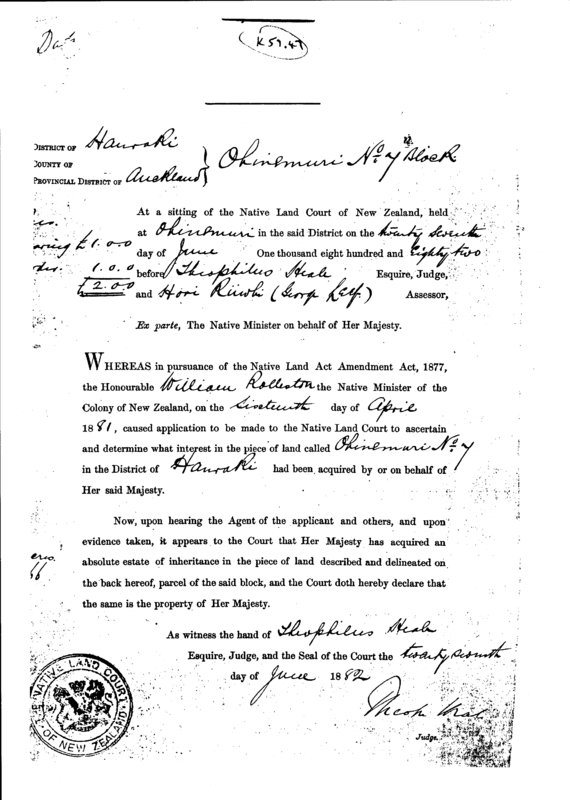 K 59.47
DISTRICT OF Hauraki
COUNTY OF
PROVINCIAL DISTRICT OF Auckland
Ohinemuri No. 7 Block
At a sitting of the Native Land Court of New Zealand, held
at Ohinemuri in the said District on the twenty seventh
day of June One thousand eight hundred and Eighty two
before Theophilus Heale Esquire, Judge,
and Hori (George Assessor,
£1.0.0
1.0.0
£2.0.0
Ex parte, The Native Minister on behalf of Her Majesty.
WHEREAS in pursuance of the Native Land Act Amendment Act, 1877,
the Honourable William Rolleston the Native Minister of the
Colony of New Zealand, on the Sixteenth day of April
1881, caused application to be made to the Native Land Court to ascertain
and determine what interest in the piece of land called Ohinemuri No. 7
in the District of Hauraki had been acquired by or on behalf of
Her said Majesty.
Now, upon hearing the Agent of the applicant and others, and upon
evidence taken, it appears to the Court that Her Majesty has acquired an
absolute estate of inheritance in the piece of land described and delineated on
the back hereof, parcel of the said block, and the Court doth hereby declare that
the same is the property of Her Majesty.
As witness the hand of Theophilus Heale
Esquire, Judge, and the Seal of the Court the twenty seventh
day of June 1882
Theop Heale
Judge.
NATIVE LAND COURT
OF NEW ZEALAND